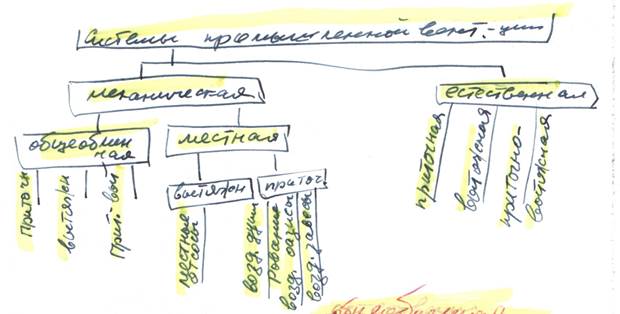 Системы промышленной вент.-ции
механическая
естественная
общеобмен
ная
местная
вытяжн
приточ.
Приточн
вытяжн
Прит. выт
местные
отсосы
возд. душ
рование
возд. оазисы
возд. завесы
приточная
вытяжная
приточно-
вытяжная